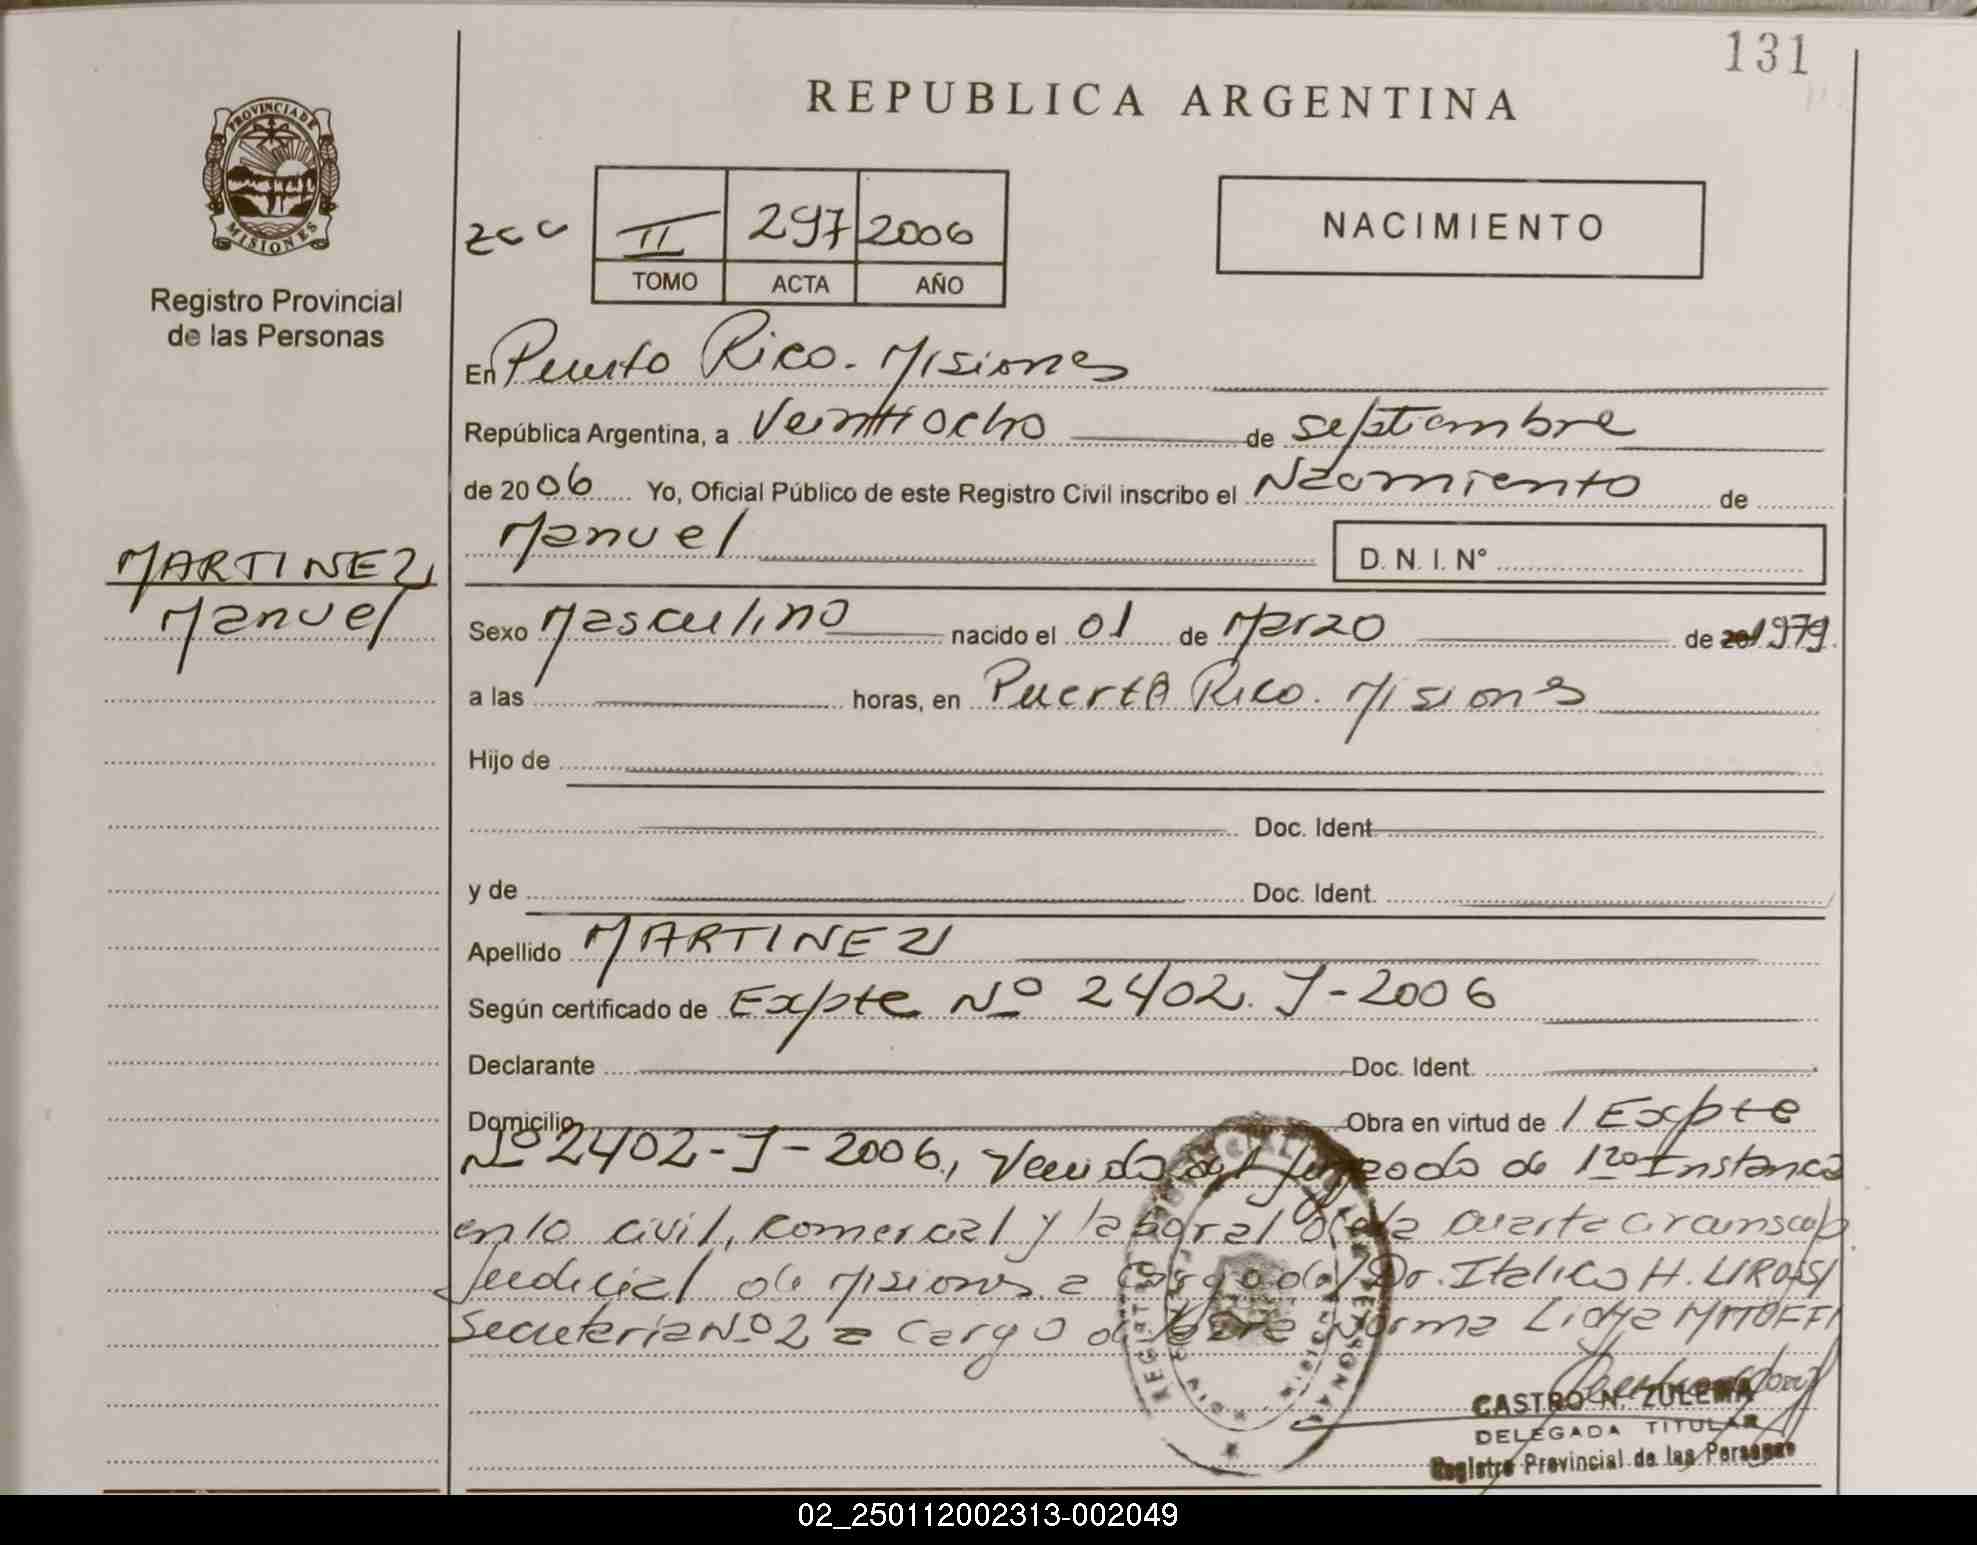 131
REPUBLICA ARGENTINA
PROVINCIA DE
MISIONES
Registro Provincial
de las Personas
II 297 2006
TOMO ACTA AÑO
NACIMIENTO
En Puerto Rico. Misiones
República Argentina, a Veintiocho de septiembre
de 2006 Yo, Oficial Público de este Registro Civil inscribo el Nacimiento de
Manuel D. N. I. Nº
MARTINEZ,
Manuel
Sexo Masculino nacido el 01 de Marzo de 1979
a las horas, en Puerto Rico. Misiones
Hijo de
Doc. Ident.
y de Doc. Ident.
Apellido MARTINEZ
Según certificado de Expte Nº 2402. J-2006
Declarante Doc. Ident.
Domicilio Obra en virtud de / Expte
Nº 2402-J-2006, Venido del Juzgado de 1ra Instancia
en lo civil, comercial y laboral de la cuarta circunscrip.
Judicial de Misiones a cargo del Dr. Italico H.
Secretaria Nº 2 a cargo de Norma Lidya
CASTRO N. ZULEMA
DELEGADA TITULAR
Registro Provincial de las Personas
02_250112002313-002049